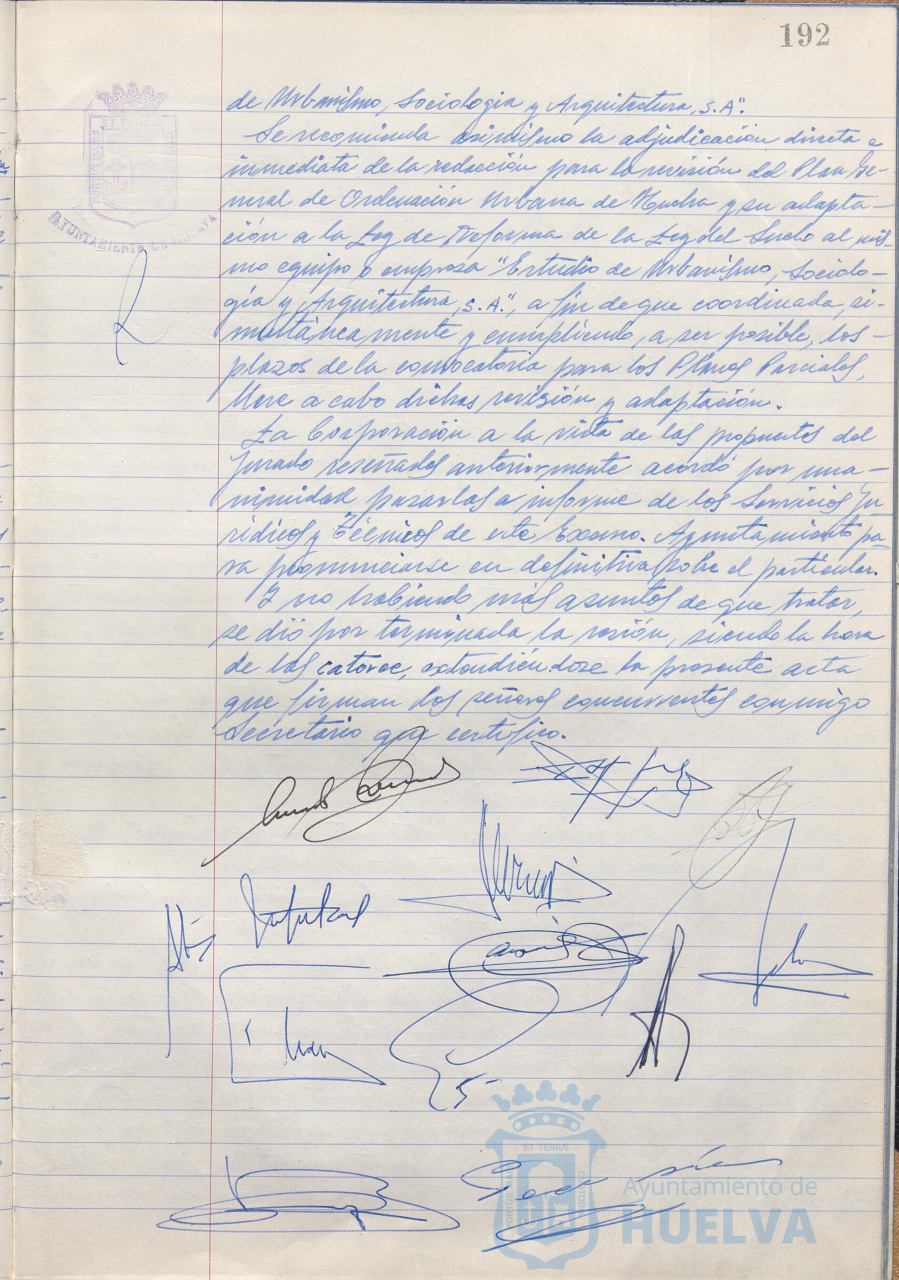 192
de Urbanismo, Sociologia y Arquitectura, S.A".
Se recomienda asimismo la adjudicación directa e
inmediata de la redacción para la revisión del Plan Ge-
neral de Ordenación Urbana de Huelva y su adapta-
ción a la Ley de Reforma de la Ley del Suelo al mis-
mo equipo o empresa "Estudio de Urbanismo, Sociolo-
gía y Arquitectura, S.A"., a fin de que coordinada, si-
multánea, mente y cumpliendo, a ser posible, los
plazos de la convocatoria para los Planes Parciales,
lleve a cabo dichas revisión y adaptación.
La Corporación a la vista de las propuestas del
Jurado reseñadas anteriormente acordó por una-
nimidad pasarlas a informe de los Servicios Ju
rídicos y Técnicos de este Excmo. Ayuntamiento pa-
ra pronunciarse en definitiva sobre el particular.
Y no habiendo más asuntos de que tratar,
se dió por terminada la sesión, siendo la hora
de las catorce, extendiéndose la presente acta
que firman los señores concurrentes conmigo
Secretario que certifico.
AYUNTAMIENTO DE HUELVA
ET TERRÆ
PORTUS MARIS
CUSTODIA
Ayuntamiento de
HUELVA